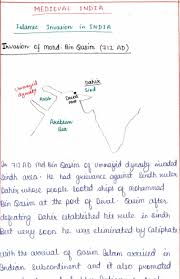 MEDIEVAL INDIA
Islamic Invasion in INDIA
Invasion of Mohd Bin Qasim (712 AD)
Ummayid
dynasty
Dahir
Sind
Arab
Port
Arabian
Sea
In 712 AD Md Bin Qasim of Ummayid dynasty invaded
Sindh area. He had grievance against Sindh ruler
Dahir whose people looted ships of Mohammad
Bin Qasim at the port of Daval. Qasim after
defeating Dahir established his rule in Sindh
But very soon he was eliminated by Caliphate
with the arrival of Qasim Islam arrived in
Indian Subcontinent and it also promoted